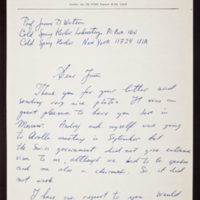 Prof. James D. Watson
Cold Spring Harbor Laboratory, P.O. Box 100
Cold Spring Harbor New York 11724 USA
Dear Jim
Thank you for your letter and
sending very nice photos. It was
great pleasure to have you here in
Moscow. Andrey and myself was going
to meeting in September but
the Soviet government did not give entrance
visa to me, although we had to be
and me also a chairman. So, it did
not work.
I have one request to you. Would